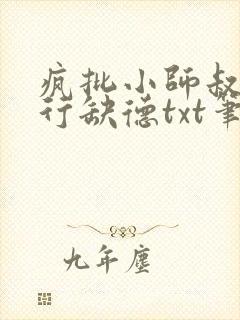 疯批小师叔
行缺德txt笔
九年尘